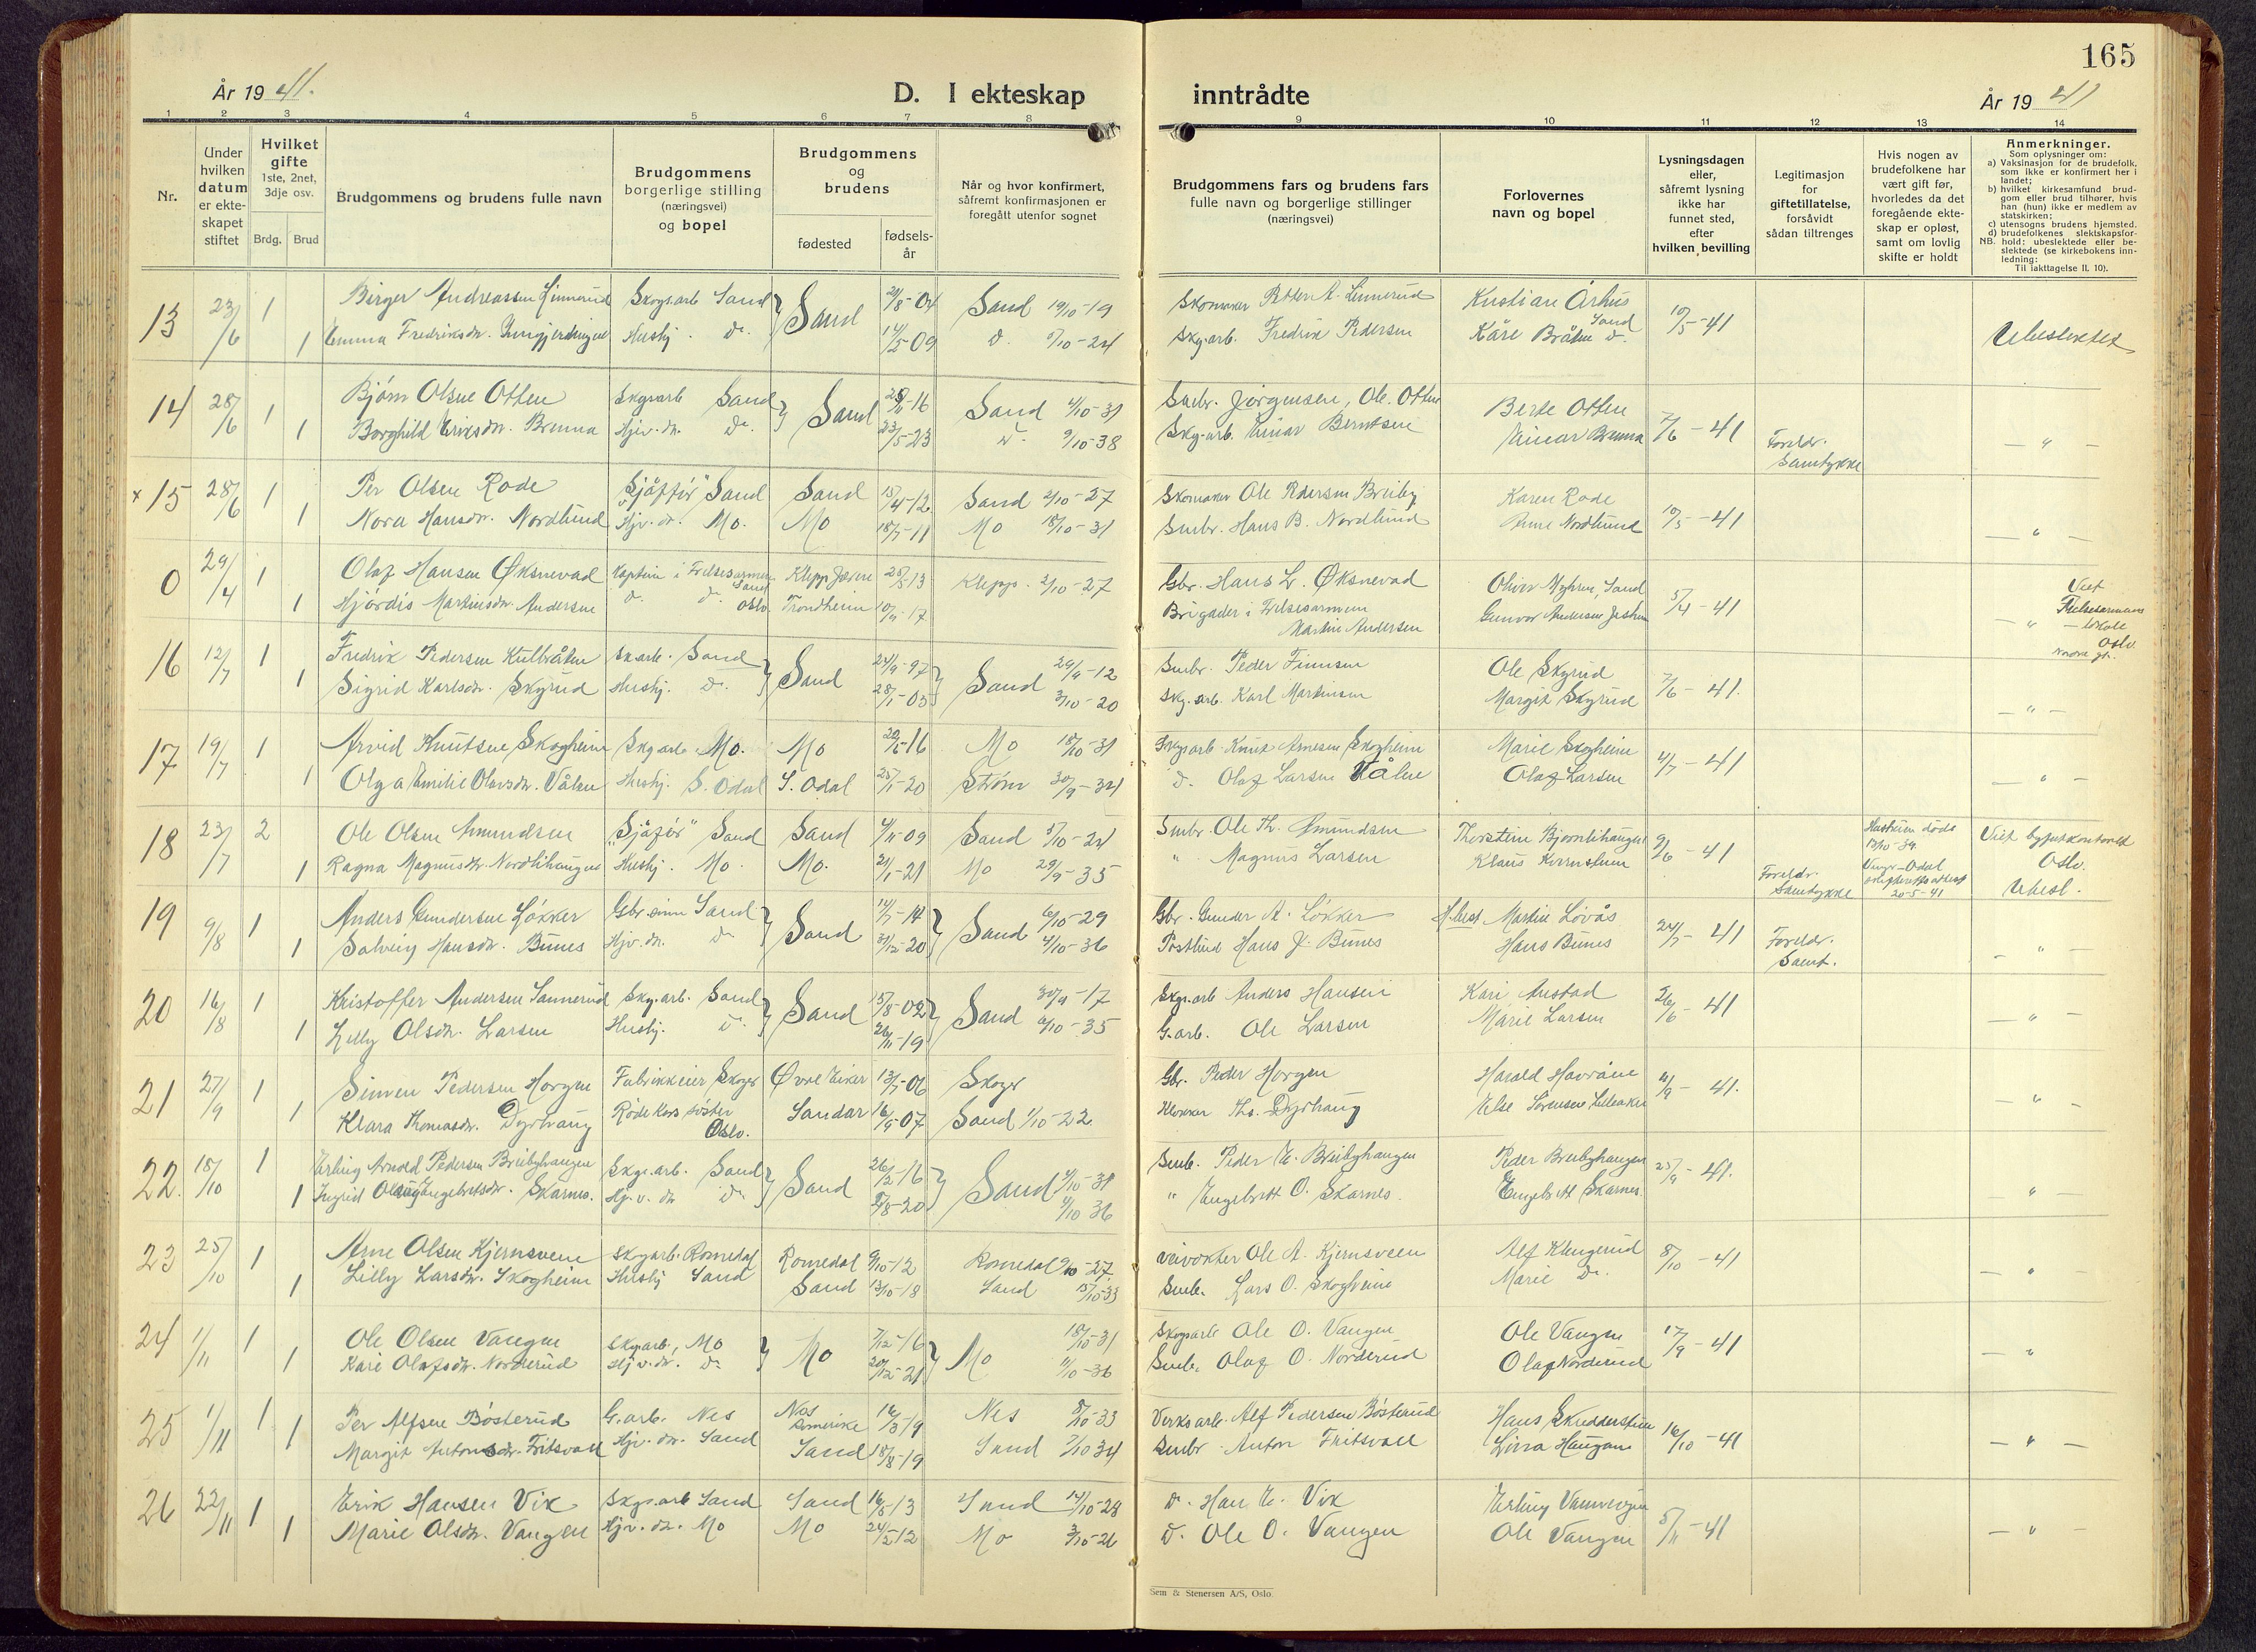 165
År 19 41.
D. I ekteskap
inntrådte
År 19 41
1 2 3 4 5 6 7 8 9 10 11 12 13 14
Nr.
Under hvilken datum er ekte-skapet stiftet
Hvilket gifte 1ste, 2net, 3dje osv.
Brdg. Brud
Brudgommens og brudens fulle navn
Brudgommens borgerlige stilling (næringsvei) og bopel
Brudgommens og brudens
fødested
fødsels-år
Når og hvor konfirmert, såfremt konfirmasjonen er foregått utenfor sognet
Brudgommens fars og brudens fars fulle navn og borgerlige stillinger (næringsvei)
Forlovernes navn og bopel
Lysningsdagen eller, såfremt lysning ikke har funnet sted, efter hvilken bevilling
Legitimasjon for giftetillatelse, forsåvidt sådan tiltrenges
Hvis nogen av brudefolkene har vært gift før, hvorledes da det foregående ekte-skap er opløst, samt om lovlig skifte er holdt
Anmerkninger.
Som oplysninger om:
a) Vaksinasjon for de brudefolk, som ikke er konfirmert her i landet;
b) hvilket kirkesamfund brud-gom eller brud tilhører, hvis han (hun) ikke er medlem av statskirken;
c) utensogns brudens hjemsted.
d) brudefolkenes slektskapsfor-
NB. hold: ubeslektede eller be-slektede (se kirkebokens inn-ledning:
Til iakttagelse II, 10).
13 23/6 1 Birger Andreassen Linnerud Skogsarb Sand Sand 04 Sand 19/10-19 Skomaker A. Linnerud Kristian Århus Sand 10/5-41
1 Emma Fredriksdr. Hushj. do. 14/5-09 d. 5/10-24 Skg.arb. Fredrik Pedersen Kåre Bråten d. Ubeslektet
14 28/6 1 Bjørn Olsen Otten Skgsarb Sand Sand 16 Sand 4/10-31 Smbr. Jørgensen, Ole Otten Berte Otten 7/6-41
1 Borghild Eriksdr. Brenna Hjv. dr. do. 23/5-23 d. 9/10-38 Skg.arb. Einar Berntsen Einar Brenna Foreldr. Samtykke — " —
x 15 28/6 1 Per Olsen Rode "Sjåffør" Sand Sand 15/4-12 Sand 2/10-27 Skomaker Ole Pedersen Breiby Karen Rode 10/5-41
1 Nora Hansdr. Nordlund Hjv. dr. Mo. Mo 18/7-11 Mo 18/10-31 Smbr. Hans B. Nordlund Nordlund — " —
0 29/4 1 Olaf Hansen Øksnevad Kaptein i Frelsesarmeen Sand Klepp Jæren 13 Klepp. 2/10-27 Gbr. Hans L. Øksnevad Oliver Myhren, Sand 5/4-41 Viet Frelsesarmeens lokale Oslo
1 Hjørdis Martinsdr. Andersen d. d. Oslo Trondheim 17 Brigader i Frelsesarmeen Martin Andersen Gunvor Andersen — " —
16 12/7 1 Fredrik Pedersen Kulbråten Sk.arb. Sand Sand 24/9-97 Sand 29/9-12 Smbr. Peder Finnsen Ole Skyrud 7/6-41.
1 Sigrid Karlsdr. Skyrud Hushj. do. 28/1-05 3/10-20 Skg. arb. Karl Martinsen Margit Skyrud — " —
17 19/7 1 Arvid Knutsen Skogheim Skg arb Mo. Mo 16 Mo 18/10-31 Skogsarb Knut Arnesen Skogheim Marie Skogheim 4/7-41
1 Olga Emilie Olavsdr. Våler Hushj. S. Odal S. Odal 25/1-20 Strøm 30/9-34 d. Olaf Larsen Våler Olaf Larsen — " —
18 23/7 2 Ole Olsen Amundsen "Sjåfør" Sand Sand 4/11-09 Sand 5/10-24 Smbr Ole Th. Amundsen Thorstein Bjørnlihaugen 9/6-41 Hustruen døds 39. Viet byfutkontoret Oslo.
1 Ragna Magnusdr. Nordlihaugen Hushj. Mo. Mo. 21/1-21 Mo 29/9-35 " Magnus Larsen Klaus Foreldr. Samtykke Vinger-Odal 20-5-41 Ubesl.
19 9/8 1 Anders Gundersen Løkker Gbr. sønn Sand Sand 14 Sand 6/10-29 Gbr. Gunder A. Løkker Martin Løvås 24/7-41
1 Solveig Hansdr. Bunes Hjv. dr. do 31/12-20 4/10-36 Hans J. Bunes Hans Bunes Foreldr. Samt. — " —
20 16/8 1 Kristoffer Andersen Sannerud Skg. arb. Sand Sand 15/8-02 Sand 30/9-17 Skgs.arb Anders Hansen Kari Austad 26/6-41
1 Lilly Olsdr. Larsen Hushj. d. 26/11-19 6/10-35 G.arb. Ole Larsen Marie Larsen — " —
21 27/9 1 Simen Pedersen Horgen Fabrikkeier Skoger Øvre Eiker 13/7-06 Skoger Gbr. Peder Horgen Harald 41.
1 Klara Thomasdr. Dyrhaug Røde Kors søster Oslo. Sandar 16/9-07 Sand 1/10-22. Klokker Ths. Dyrhaug Else Sørensen Lilleaker — " —
22. 18/10 1 Erling Arnold Pedersen Breibyhaugen Skgs.arb. Sand Sand 26/2-16 Sand 4/10-31 Smb. Peder E. Breibyhaugen Peder Breibyhaugen 25/9-41.
1 Ingrid Engebretsdr. Skarnes. Hj. v. dr do 8-20 4/10 36 " Engebrett O. Skarnes. Engebrett Skarnes. — " —
23 25/10 1 Arne Olsen Kjernsveen skgarb. Romedal Romedal 9/10-12 Romedal 9/10-27. Veivokter Ole A. Kjernsveen Alf Klengerud 8/10-41
1 Lilly Larsdr. Skogheim Hushj Sand Sand 13/10-18 Sand 15/10-33 Smb. Lars O. Skogheim Marie do. — " —
24 1/11 1 Ole Olsen Vangen Skg.arb, Mo Mo 7/12-16 Mo 18/10-31 Skogsarb Ole O. Vangen Ole Vangen 17/9-41
1 Kari Olafsdr. Norderud Hj.v.dr. do 20/12-21 11/10-36 Smb. Olaf O. Norderud Olaf Norderud — " —
25 1/11 1 Per Alfsen Bøsterud G.arb. Nes Nes Romerike 16/3-19 Nes 8/10-33 Verksarb. Alf Pedersen Bøsterud Hans Skudderstuen 16/10-41
1 Margit Antonsdr. Fritsvoll Hjv. dr. Sand Sand 18/8-19 Sand 7/10 34 Smbr Anton Fritsvoll Haugan — " —
26 22/11 1 Erik Hansen Vik Skgs.arb Sand Sand 16/5-13 Sand 14/10-28 d. Hans E. Vik Erling 5/11-41
1 Marie Olsdr. Vangen Hjv. dr. Mo Mo 24/5-12 Mo 3/10-26 d. Ole O. Vangen Ole Vangen — " —
Sem & Stenersen A/S, Oslo.